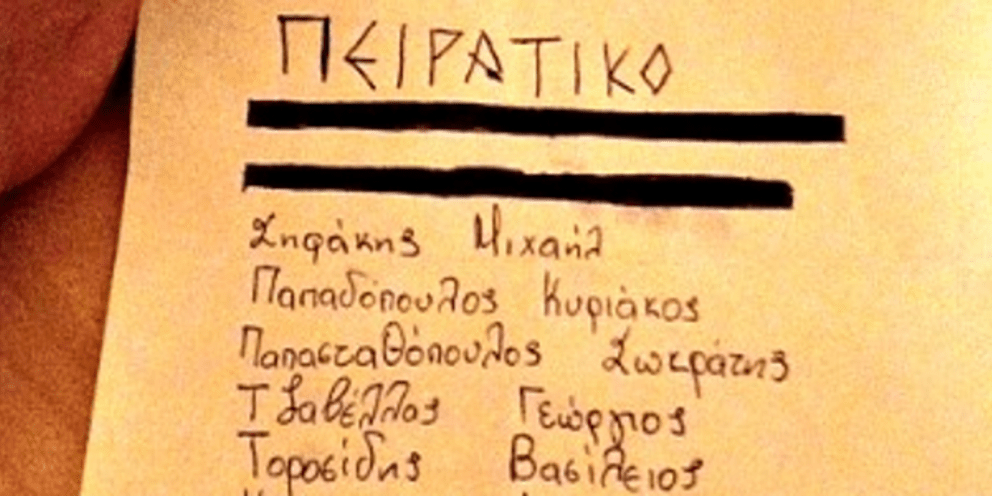 ΠΕΙΡΑΤΙΚΟ
Σηφάκης Μιχαήλ
Παπαδόπουλος Κυριάκος
Παπασταθόπουλος Σωκράτης
Τζαβέλλος Γεώργιος
Τοροσίδης Βασίλειος